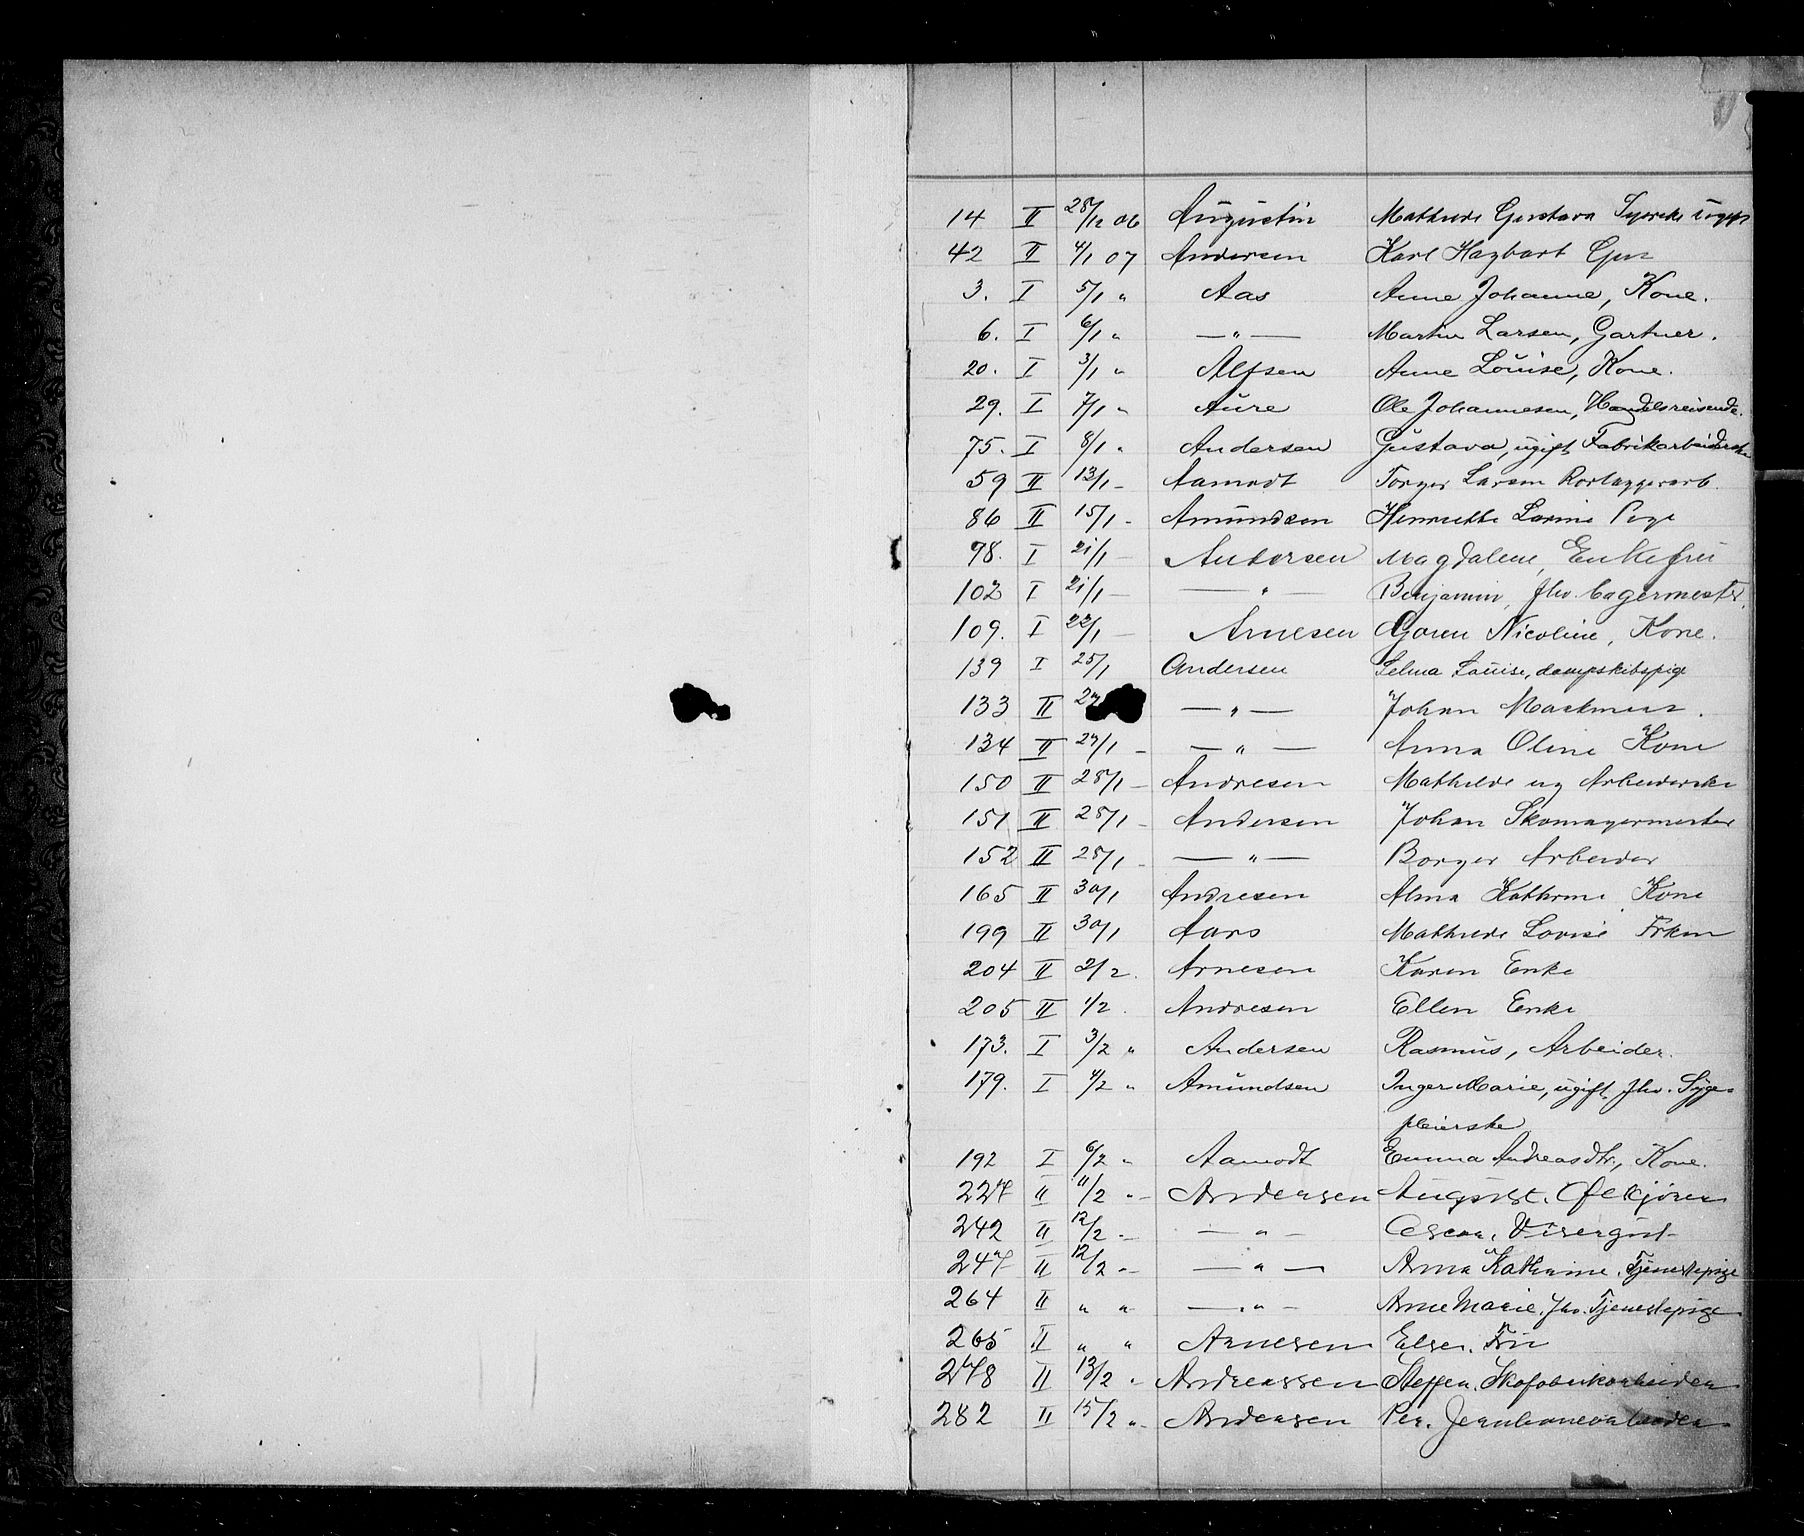 14 II 28/12 06 Augustin Mathilde Gustava Syerske ugift
42 II 4/1 07 Andersen Karl Hagbart
3. I 5/1 " Aas Anne Johanne, Kone.
6. I 6/1 " — " — Martin Larsen, Gartner.
20. I 3/1 " Alfsen Anne Louise, Kone.
29. I 7/1 " Aure Ole Johannesen, Handelsreisende.
75. I 8/1 " Andersen Gustava, ugift Fabrikarbeiderske
59 II 13/1 - Aamodt Torger Larsen Rorlæggerarb.
86 II 15/1 - Amundsen Henriette Larine Pige
98. I 21/1 — Andersen Magdalene, Enkefru
102 I 21/1 — — " — Benjamin, fhv. Bagermester.
109. I 22/1 — Arnesen Goren Nicoline, Kone.
139 I 25/1 Andersen Selma Louise, dampskibspige
133 II — " — Johan Markmus.
134 II 27/1 - — " — Anna Oline Kone
150 II 28/1 - Andresen Mathilde ug Arbeiderske
151 II 28/1 - Andersen Johan Skomagermester
152 II 28/1 - — " — Borger Arbeider
165 II 30/1 Andresen Alma Kathrine Kone
199 II 30/1 Aars Mathilde Lovise Frkn
204 II 2/2. Arnesen Karen Enke
205 II 1/2. Andresen Ellen Enke
173. I 3/2 " Andersen Rasmus, Arbeider.
179. I 4/2 " Amundsen Inger Marie, ugift, fhv. Syge-
pleierske
192 I 6/2 " Aamodt Emma Andreasdtr, Kone.
227 II 11/2 " - Andersen August.
242 II 12/2 " - — " — Oscar. Visergut
247 II 12/2 " - — " — Anna Kathrine. Tjenestepige
264 II " " — " — Anne Marie. fhv. Tjenestepige
265 II " " Arnesen Elise. Fru
278 II 13/2 " Andreassen Steffen. Skofabrikarbeider
282 II 15/2 " Andersen Per. Jernbanearbeider